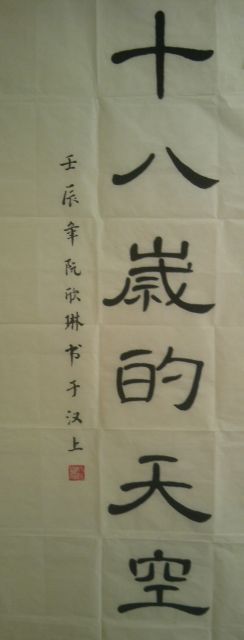 十八歲的天空
壬辰年阮欣琳书于汉上